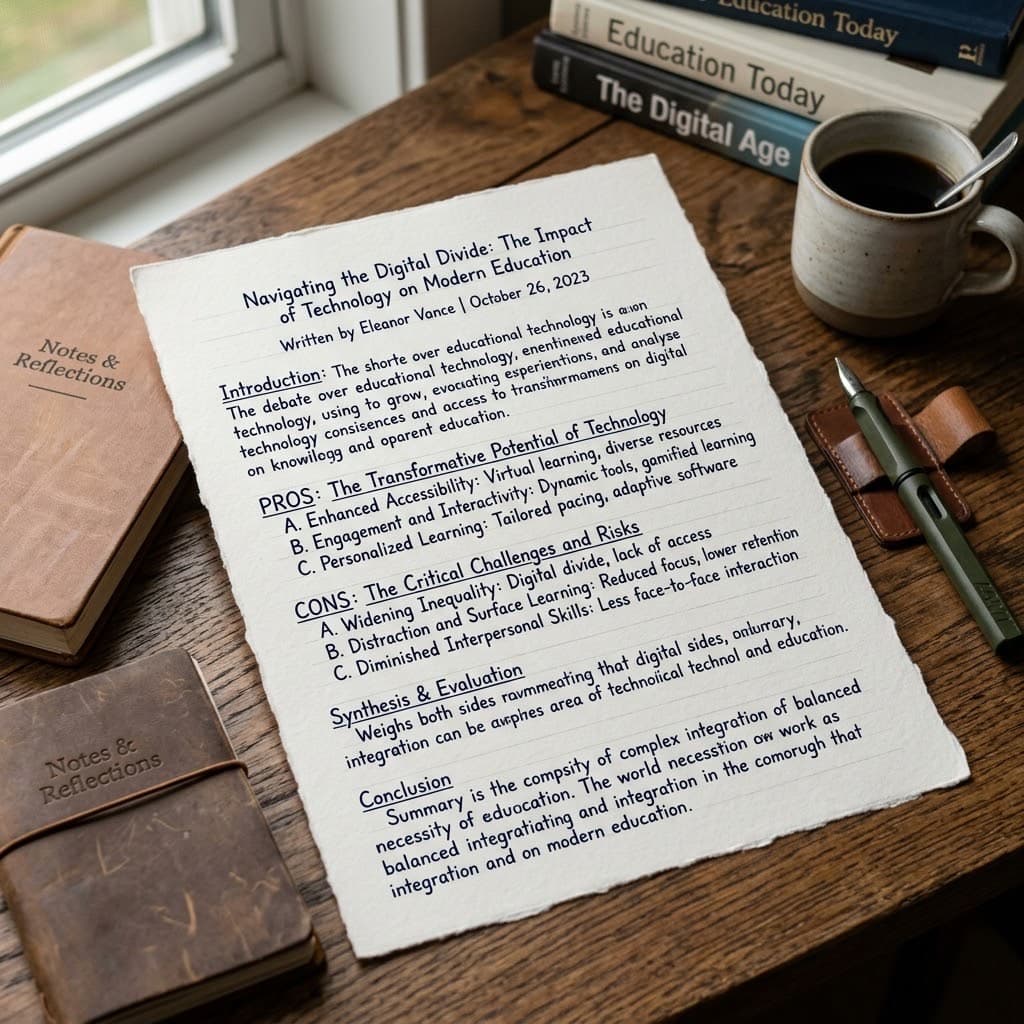 Education Today
Education Today
The Digital Age
Notes &
Reflections
Navigating the Digital Divide: The Impact
of Technology on Modern Education
Written by Eleanor Vance | October 26, 2023
Introduction: The shorte over educational technology is
The debate over educational technology, enentineed educational
technology, using to grow, evocating esperientions, and analyse
technology consisences and access to on digital
on knowilogg and oparent education.
PROS: The Transformative Potential of Technology
A. Enhanced Accessibility: Virtual learning, diverse resources
B. Engagement and Interactivity: Dynamic tools, gamified learning
C. Personalized Learning: Tailored pacing, adaptive software
CONS: The Critical Challenges and Risks
A. Widening Inequality: Digital divide, lack of access
B. Distraction and Surface Learning: Reduced focus, lower retention
C. Diminished Interpersonal Skills: Less face-to-face interaction
Synthesis & Evaluation
Weighs both sides that digital sides,
integration can be area of technoical technol and education.
Conclusion
Summary is the compsity of complex integration of balanced
necessity of eduocation. The world necesstion work as
balanced integratiating and integration in the comorugh that
integration and on modern education.
Notes &
Reflections